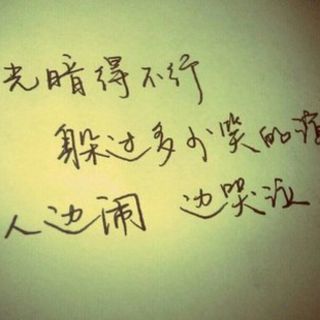 光暗得不行
躲过多少笑的
人边闹 边哭泣